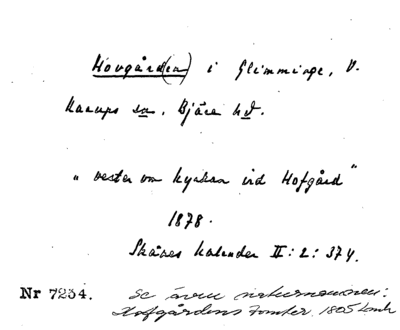 Hovgård(en) i Glimminge, V.
Karups sn. Bjäre hd.
"vester om kyrkan vid Hofgård"
1878.
Skånes kalender II: 2: 374.
Nr 7234. se även naturnamnen:
Hofgårdens Tomter 1805 Lmk